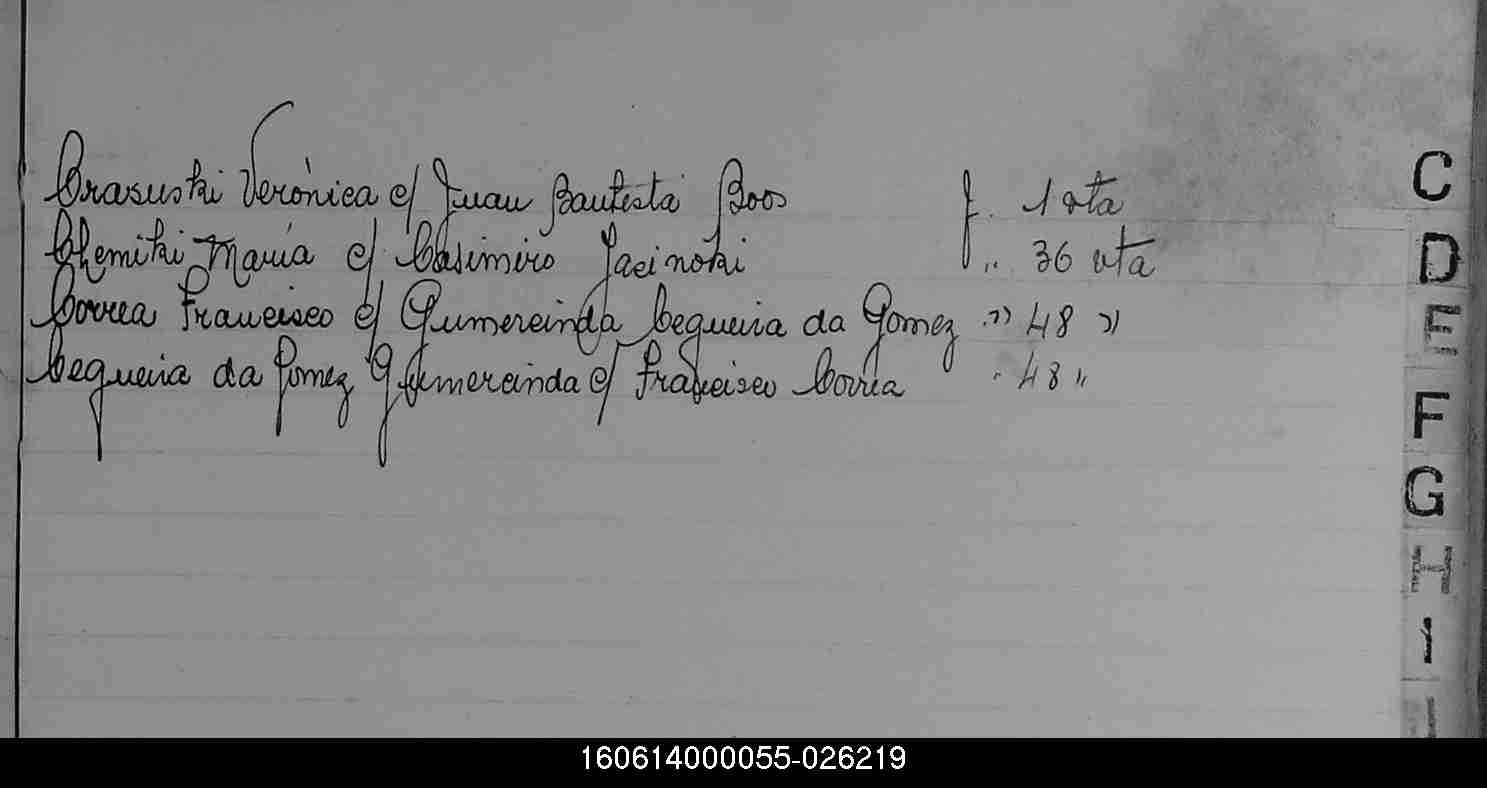 Crasuski Verónica c/ Juan Bautista Boos f. 1 vta
Chemiki María c/ Casimiro Jacinoki „ 36 vta
Correa Francisco c/ Gumercinda Cequeira da Gomez „ 48 „
Cequeira da Gomez Gumercinda c/ Francisco Correa „ 48 „
C
D
E
F
G
H
I
160614000055-026219